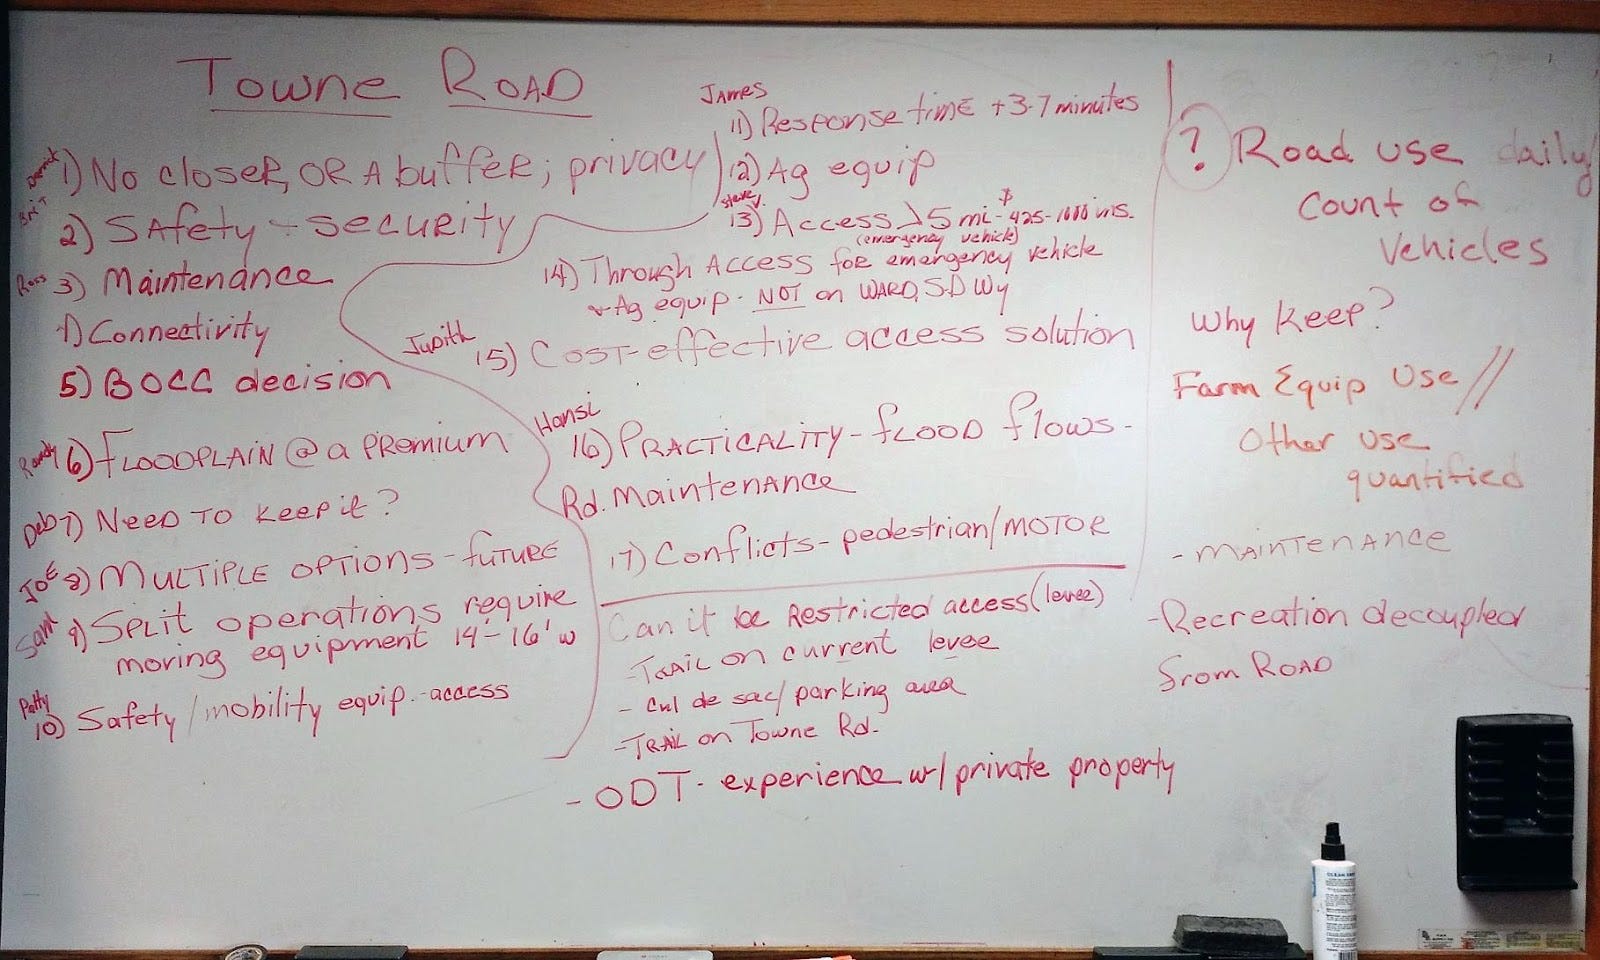 Towne Road
Derrick
1) No closer, OR A buffer; privacy
Brit
2) Safety + security
Ross
3) Maintenance
4) Connectivity
5) BOCC decision
Randy
6) Floodplain @ a premium
Deb
7) Need to keep it?
Joe
8) Multiple options - future
Sam
9) Split operations require
moving equipment 14'-16' w
Patty
10) Safety/mobility equip. - access
James
11) Response time + 3-7 minutes
12) Ag equip
Steve V.
13) Access
5 mi - $425-1000 ins.
(emergency vehicle)
14) Through Access for emergency vehicle
Ag equip - NOT on WARD, S-D Wy
Judith
15) Cost-effective access solution
Hansi
16) Practicality - flood flows -
Rd. Maintenance
17) Conflicts - pedestrian/motor
Can it be Restricted access (levee)
- Trail on current levee
- Cul de sac/parking area
- Trail on Towne Rd.
- ODT - experience w/ private property
? Road use daily/
Count of
Vehicles
Why keep?
Farm Equip Use //
Other use
quantified
- Maintenance
- Recreation decoupled
from Road